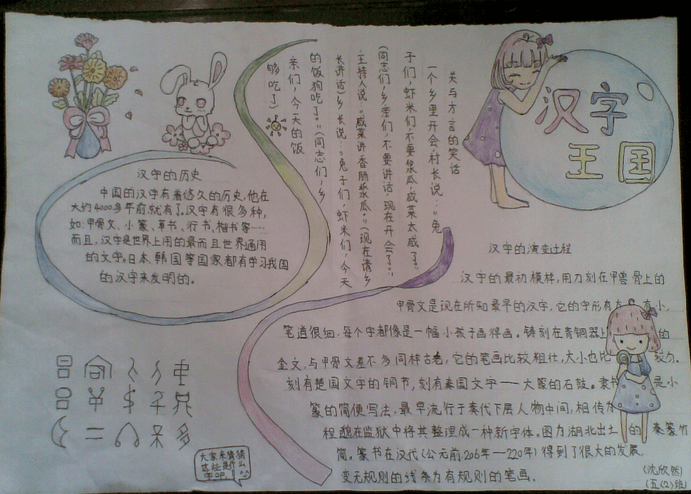 汉字
王国
关与方言的笑话
一个乡里开会,村长说:“兔
子们,虾米们,不要浆瓜,咸菜太咸了。”
(同志们,乡亲们,不要讲话,现在开会了。)
主持人说:“咸菜讲香肠浆瓜。”(现在请乡
长讲话)乡长说:“兔子们,虾米们,今天
的饭狗吃了。”(同志们,乡
亲们,今天的饭
够吃了)
汉字的历史
中国的汉字有着悠久的历史,他在
大约4000多年前就有了,汉字有很多种,
如:甲骨文、小篆、草书、行书、楷书等…
而且,汉字是世界上用的最而且世界通用
的文字。日本、韩国等国家都有学习我国
的汉字来发明的。
汉字的演变过程
汉字的最初模样,用刀刻在甲兽骨上的
甲骨文是现在所知最早的汉字,它的字形有 小,
笔道很细,每个字都像是一幅小孩子画得画。铸刻在青铜器上 的
金文,与甲骨文差不多同样古老,它的笔画比较粗壮,大小也比
刻有楚国文字的铜节,刻有秦国文字——大篆的石鼓。 是小
篆的简便写法,最早流行于秦代下层人物中间,相传
程邈在监狱中将其整理成一种新字体。图为湖北出土的 秦篆竹
简。篆书在汉代(公元前206年—220年)得到了很大的发展,
变无规则的线条为有规则的笔画。
大家来猜猜
这些是什么
字吧。
(沈欣然)
(五(2)班)